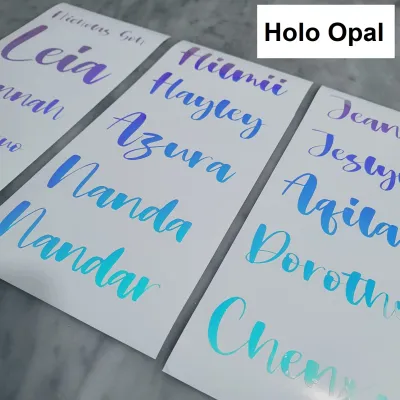 Holo Opal
Nicholas Goh
Leia
nnah
no
Hilmii
Hayley
Azura
Nanda
Nandar
Jean
Jesly
Aqila
Doroth
Chen